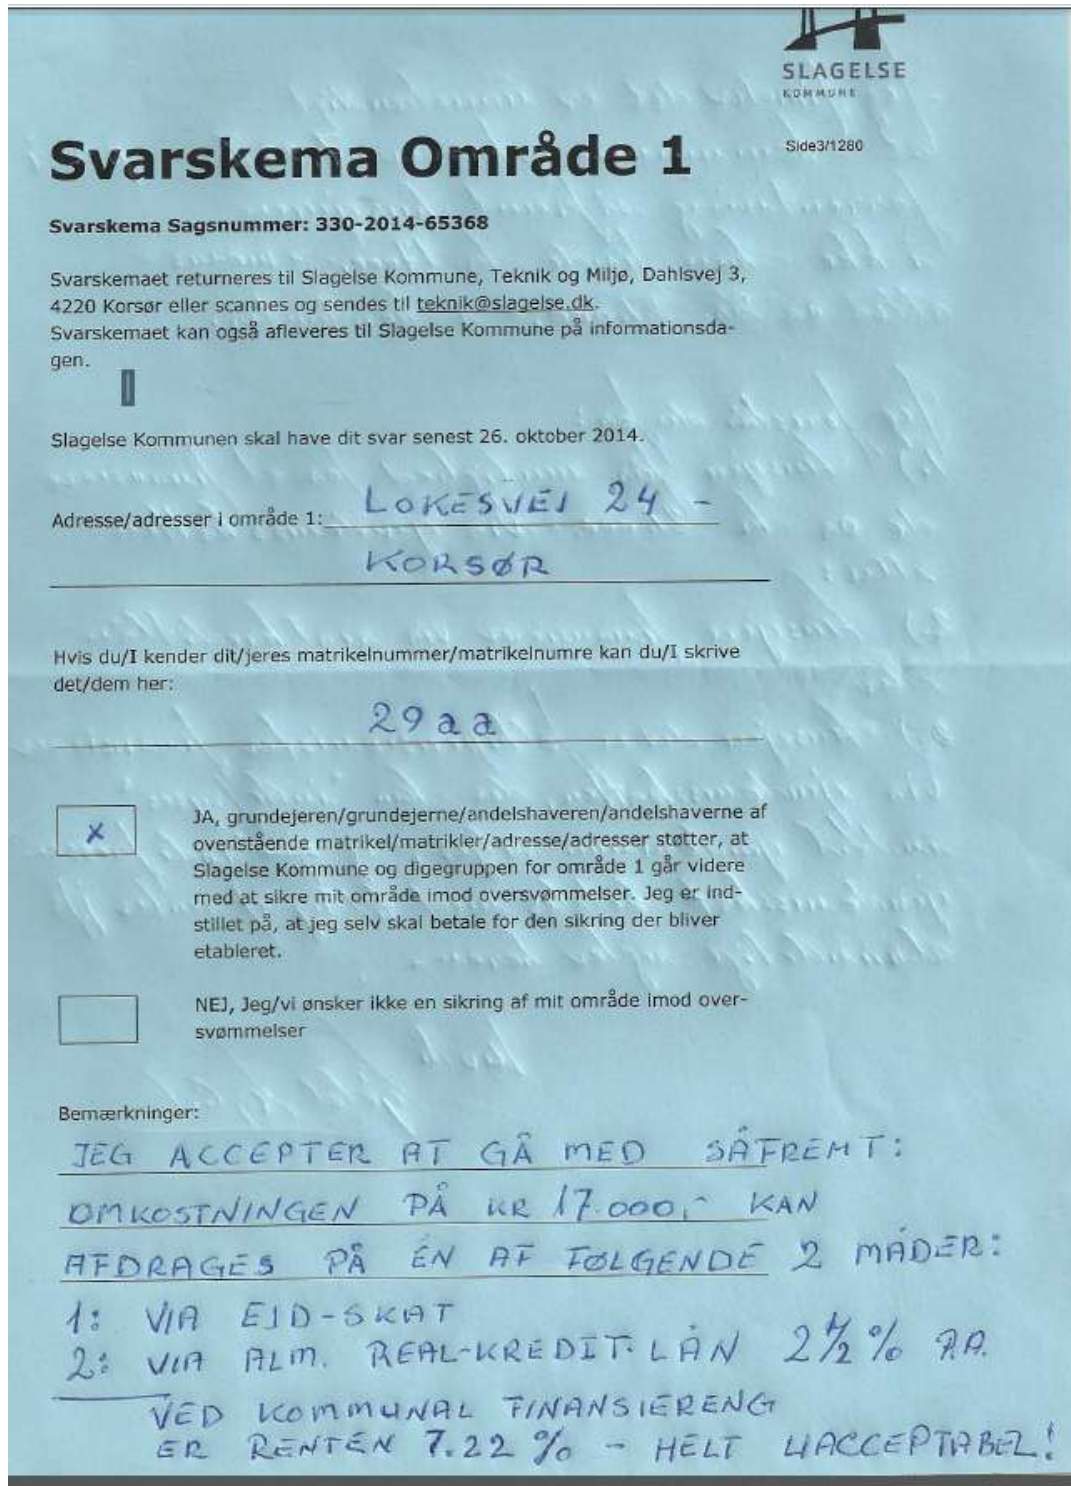 SLAGELSE
KOMMUNE
Svarskema Område 1
Side3/1280
Svarskema Sagsnummer: 330-2014-65368
Svarskemaet returneres til Slagelse Kommune, Teknik og Miljø, Dahlsvej 3,
4220 Korsør eller scannes og sendes til teknik@slagelse.dk.
Svarskemaet kan også afleveres til Slagelse Kommune på informationsda-
gen.
Slagelse Kommunen skal have dit svar senest 26. oktober 2014.
Adresse/adresser i område 1: LOKESVEJ 24 -
KORSØR
Hvis du/I kender dit/jeres matrikelnummer/matrikelnumre kan du/I skrive
det/dem her:
29aa
x JA, grundejeren/grundejerne/andelshaveren/andelshaverne af
ovenstående matrikel/matrikler/adresse/adresser støtter, at
Slagelse Kommune og digegruppen for område 1 går videre
med at sikre mit område imod oversvømmelser. Jeg er ind-
stillet på, at jeg selv skal betale for den sikring der bliver
etableret.
NEJ, Jeg/vi ønsker ikke en sikring af mit område imod over-
svømmelser
Bemærkninger:
JEG ACCEPTER AT GÅ MED SÅFREMT:
OMKOSTNINGEN PÅ KR 17.000,- KAN
AFDRAGES PÅ ÉN AF FØLGENDE 2 MÅDER:
1: VIA EJD-SKAT
2: VIA ALM. REAL-KREDIT-LÅN 2½% P.A.
VED KOMMUNAL FINANSIERENG
ER RENTEN 7.22 % - HELT UACCEPTABEL!